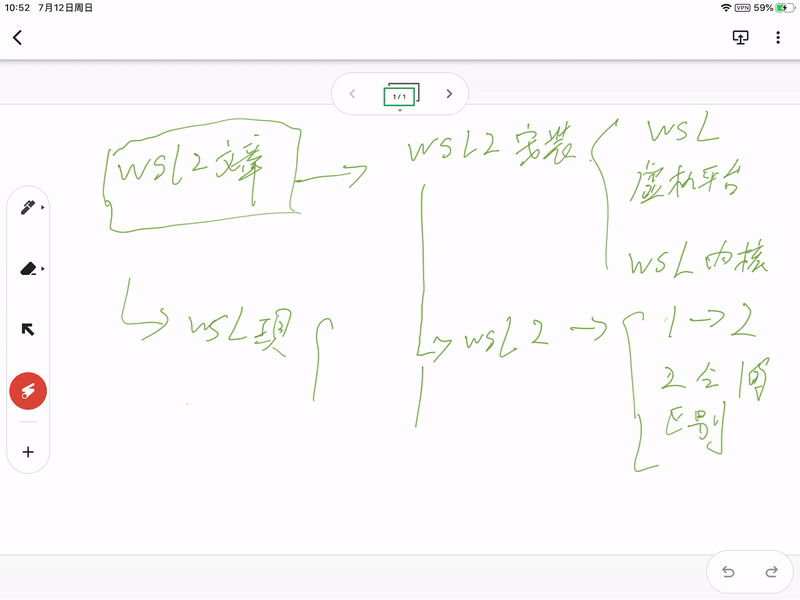 10:52 7月12日周日
VPN 59%
1/1
WSL2 文章
WSL2 安装
WSL
虚机平台
WSL 内核
WSL 2
1 → 2
区别
WSL